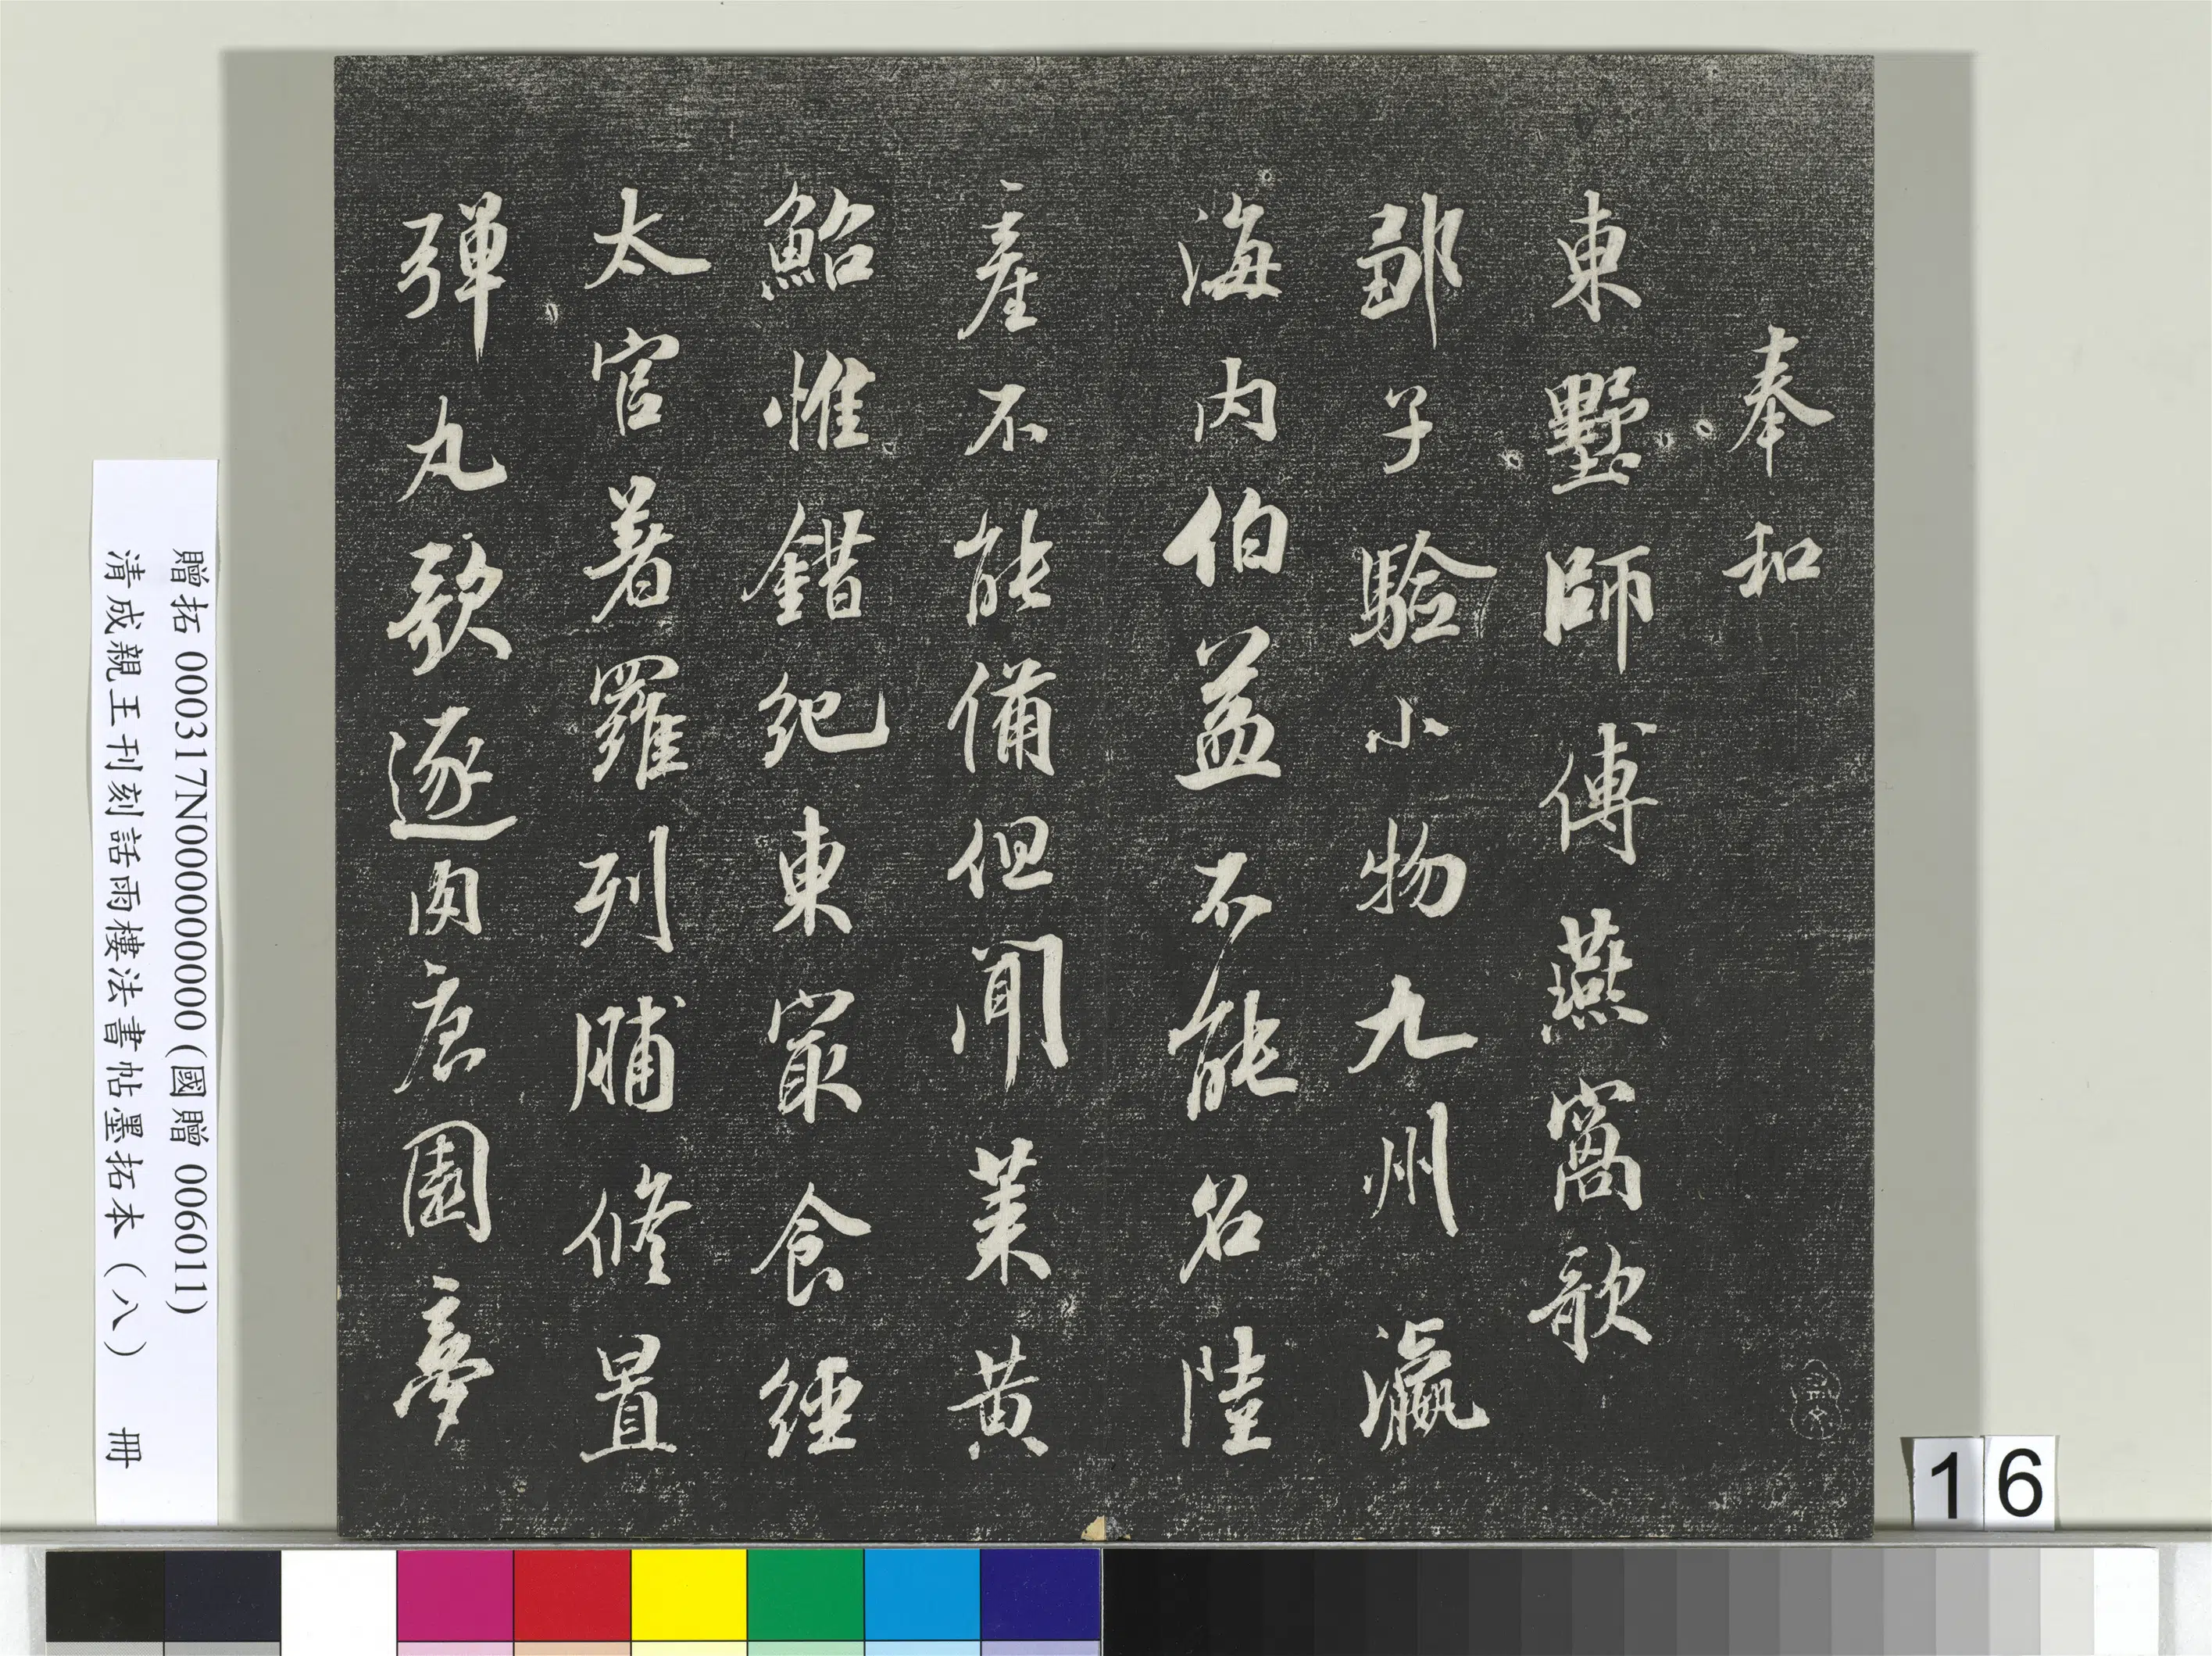 奉和
東墅師傅燕窩歌
鄒子驗小物九州瀛
海内伯益不能名陸
產不能備但聞萊黄
鮐惟錯紀東冣食經
太官著羅列脯脩置
彈丸欵逐肉唐園夢
贈拓 000317N000000000(國贈 006011)
清成親王刊刻話雨樓法書帖墨拓本(八) 冊
16